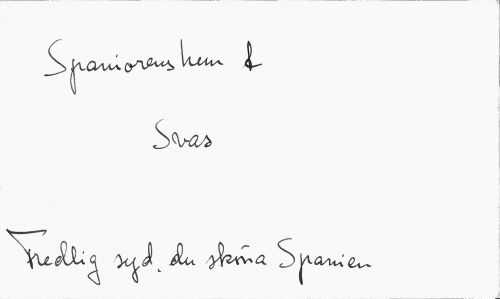 Spaniorens hem &
Svas
Fredlig syd, du sköna Spanien